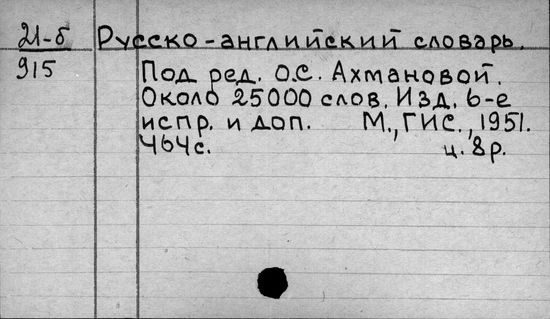 21-б Русско-английский словарь.
915 Под ред. О.С. Ахмановой.
Около 25000 слов. Изд. 6-е
испр. и доп. М., ГИС., 1951.
464с. ц. 8р.